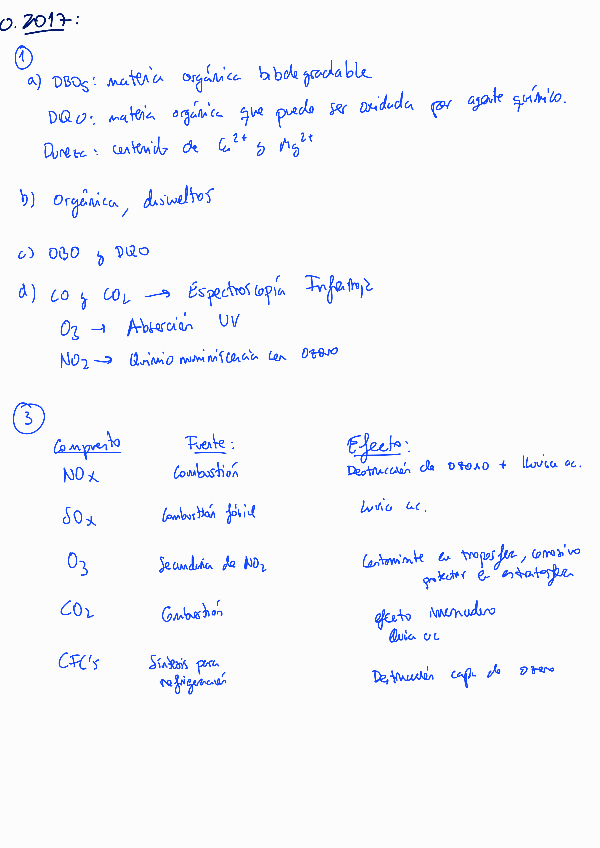 O. 2017:
1
a) DBO5: materia orgánica biodegradable
DQO: materia orgánica que puede ser oxidada por agente químico.
Dureza: contenido de Ca2+ y Mg2+
b) Orgánica, disueltos
c) DBO y DQO
d) CO y CO2 → Espectroscopía
O3 → Absorción UV
NO2 → con ozono
3
Compuesto Fuente: Efecto:
NOx Combustión Destrucción de ozono + lluvia ac.
SOx Combustión fósil Lluvia ac.
O3 Secundaria de NO2 Contaminante en troposfera, corrosivo
protector en estratosfera
CO2 Combustión efecto invernadero
lluvia ac
CFC's Síntesis para Destrucción capa de ozono
refrigeración